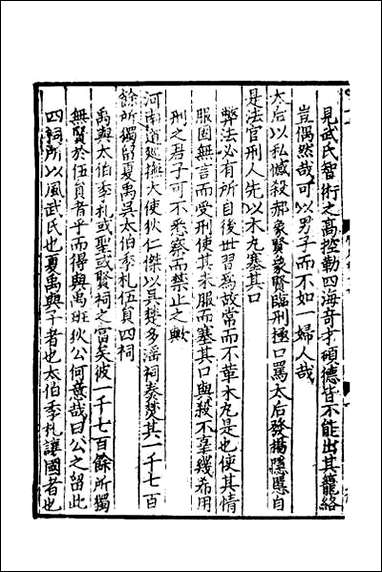 見武氏智術之高控勒四海竒才碩德皆不能出其籠絡
豈偶然哉可以男子而不如一婦人哉
太后以私憾殺郝象賢象賢臨刑極口罵太后發揚隱慝自
是法官刑人先以木丸塞其口
弊法必有所自後世習為故常而不革木丸是也使其情
服固無言而受刑使其未服而塞其口與殺不辜幾希用
刑之君子可不悉察而禁止之歟
河南道巡撫大使狄仁傑以吳楚多淫祠奏焚其一千七百
餘所獨留夏禹吳太伯季札伍員四祠
禹與太伯季札或聖或賢祠之宜矣彼一千七百餘所獨
無賢於伍員者乎而得與禹班狄公何意哉曰公之留此
四祠所以風武氏也夏禹與子者也太伯季札讓國者也